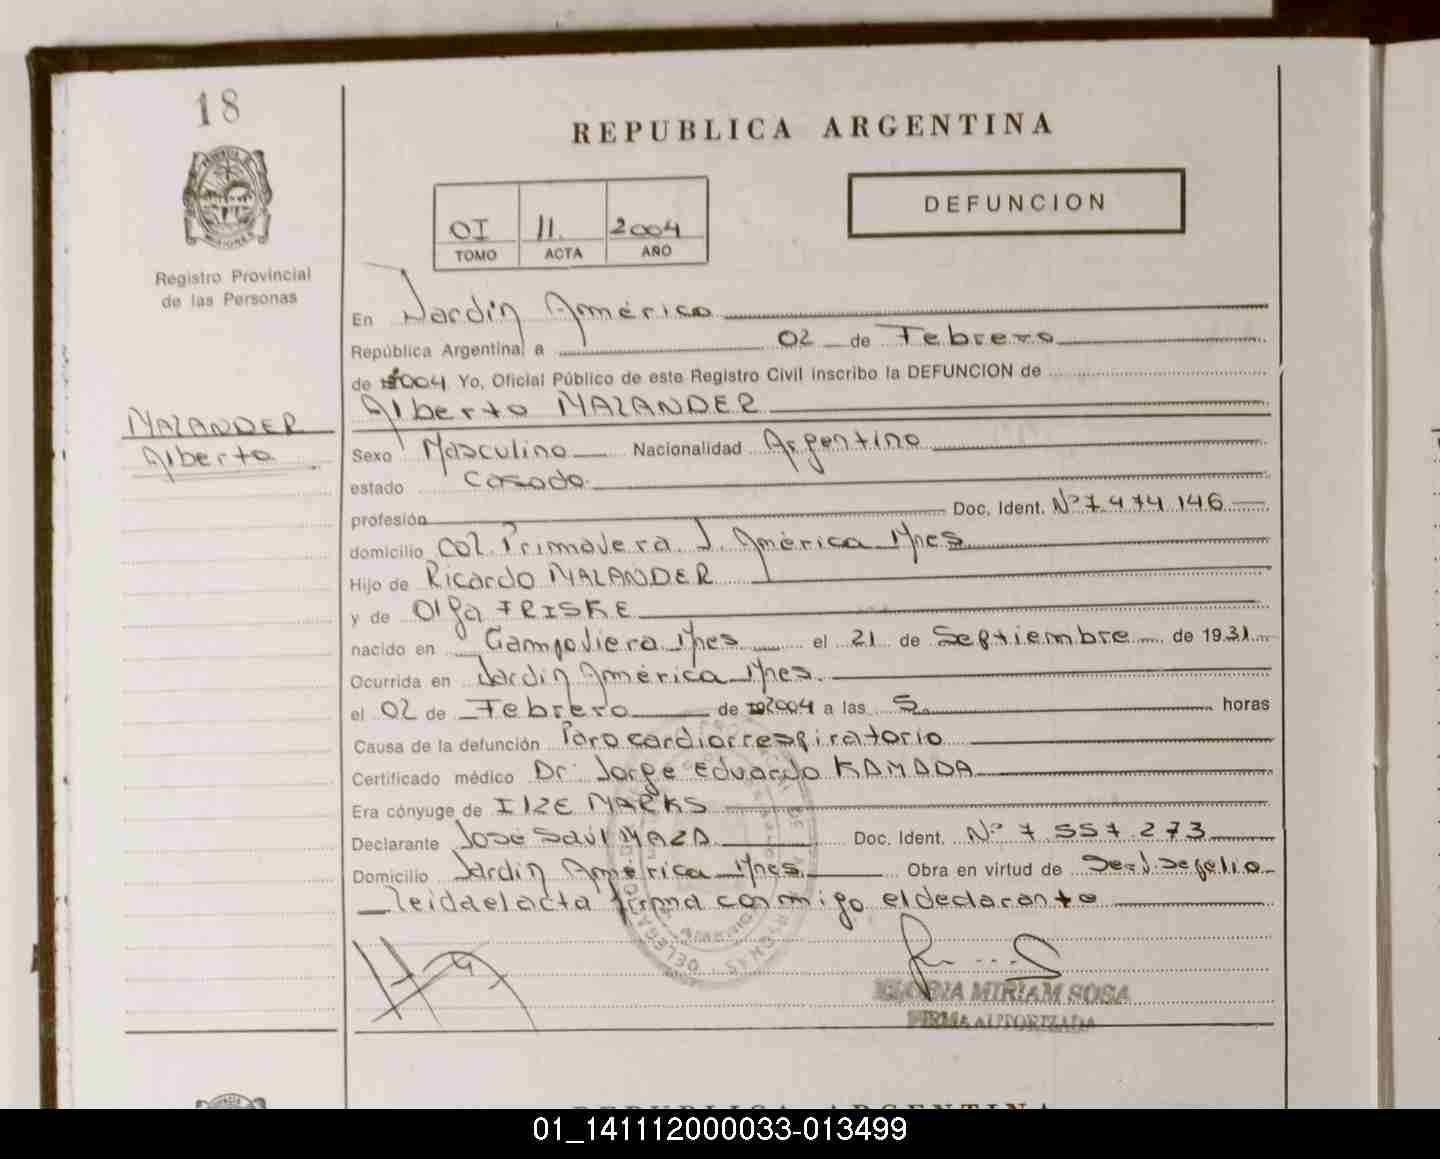 18
REPUBLICA ARGENTINA
DEFUNCION
OI 11. 2004
TOMO ACTA AÑO
Registro Provincial
de las Personas
En Jardín América
República Argentina, a 02 de Febrero
de 2004 Yo, Oficial Público de este Registro Civil inscribo la DEFUNCION de
Alberto MALANDER
MALANDER
Alberto
Sexo Masculino Nacionalidad Argentino
estado Casado
profesión Doc. Ident. Nº 7 474 146
domicilio Col. Primavera J. América Mnes
Hijo de Ricardo MALANDER
y de Olga FRISKE
nacido en Campo Viera Mnes el 21 de Septiembre de 1931
Ocurrida en Jardín América Mnes.
el 02 de Febrero de 2004 a las 5 horas
Causa de la defunción Paro cardiorrespiratorio
Certificado médico Dr. Jorge Eduardo KAMADA
Era cónyuge de ILZE MARKS
Declarante José Saúl MAZA Doc. Ident. Nº 7 557 273
Domicilio Jardín América Mnes. Obra en virtud de
Leida el acta firma conmigo el declarante
MIRIAM SOSA
FIRMA AUTORIZADA
REPUBLICA ARGENTINA
01_141112000033-013499